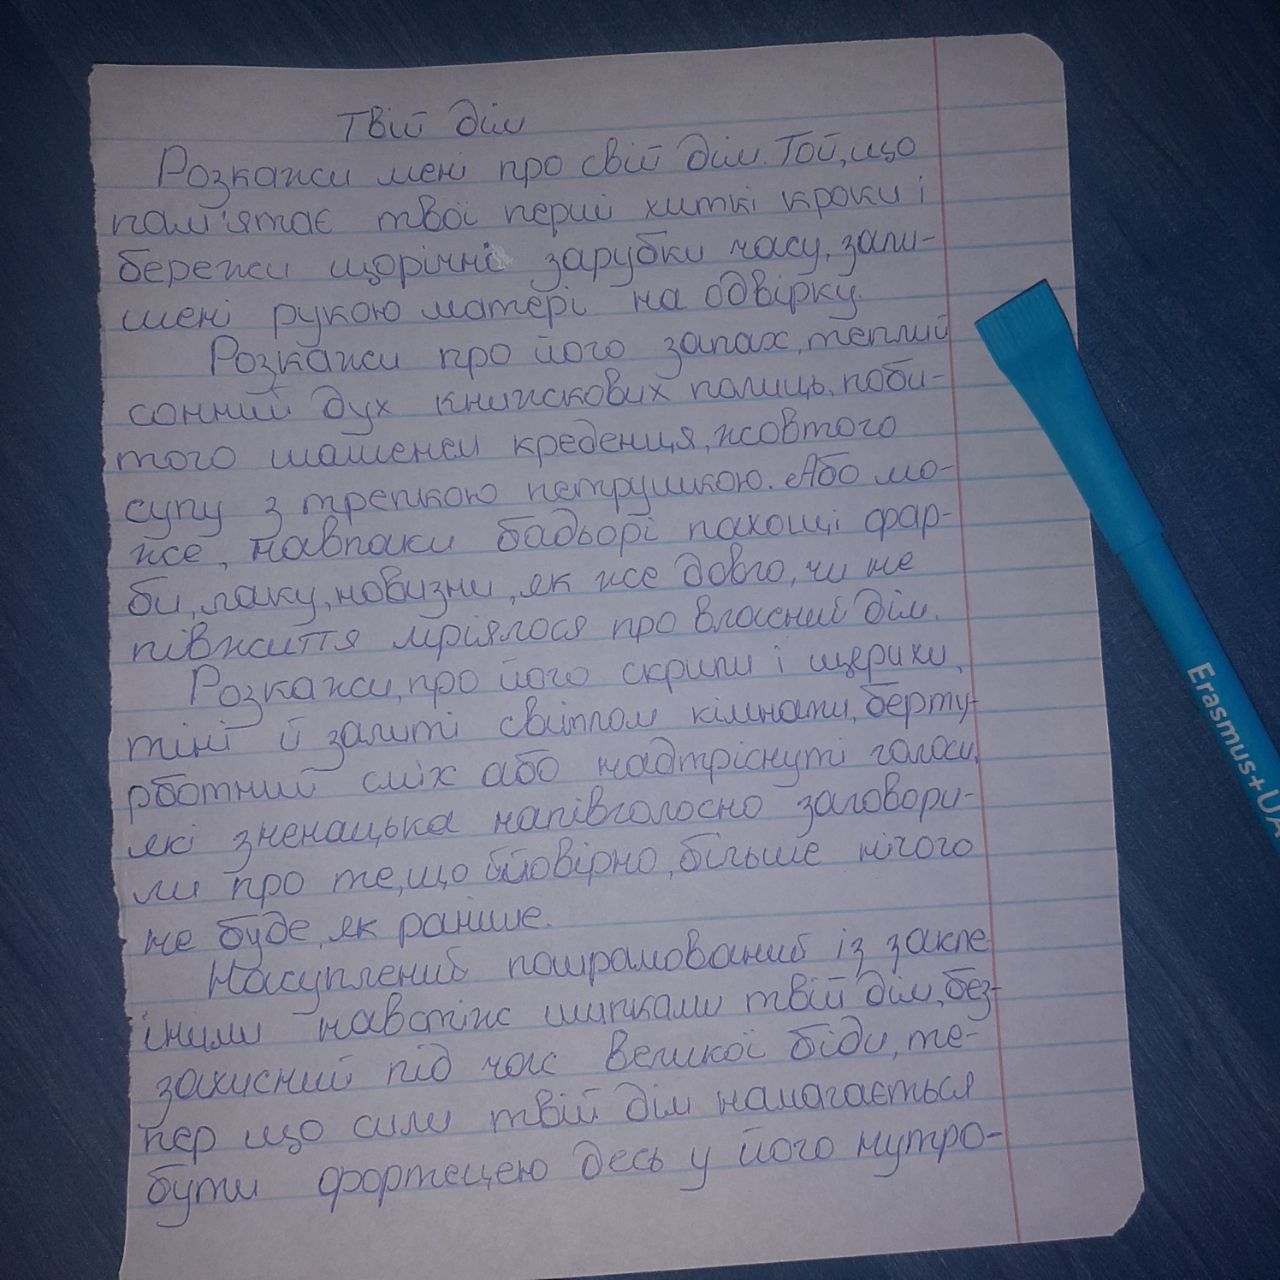 Твій дім
Розкажи мені про свій дім. Той, що
пам'ятає твої перші хиткі кроки і
бережи щорічні зарубки часу, запи-
шені рукою матері на одвірку.
Розкажи про його запах, теплий
сонний дух книжкових полиць, поби-
того шашенем креденця, жовтого
супу з трепкою петрушкою. Або мо-
же, навпаки бадьорі пахощі фар-
би, лаку, новизни, як же довго, чи не
півжиття мріялося про власний дім.
Розкажи, про його скрипи і щерихи,
тіні й залиті світлом кімнати, берту-
рботний сміх або надтріснуті голоси,
які зненацька напівголосно заговори-
ли про те, що ймовірно, більше нічого
не буде, як раніше.
Насуплений пошрамований із закле
їними навстіж шипками твій дім, без-
захисний під час Великої біди, те-
пер що сили твій дім намагається
бути фортецею десь у його нутро-
Erasmus+UA